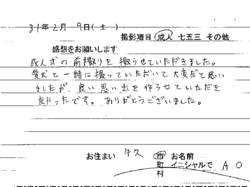 31年2月9日(土)
撮影項目 成人 七五三 その他
感想をお願いします
成人式の前撮りを撮らせていただきました。
愛犬と一緒に撮っていただいて大変だと思い
ましたが、良い思い出を作らせていただき
良かったです。ありがとうございました。
お住まい 牛久 市 町 村 お名前 イニシャルで A O